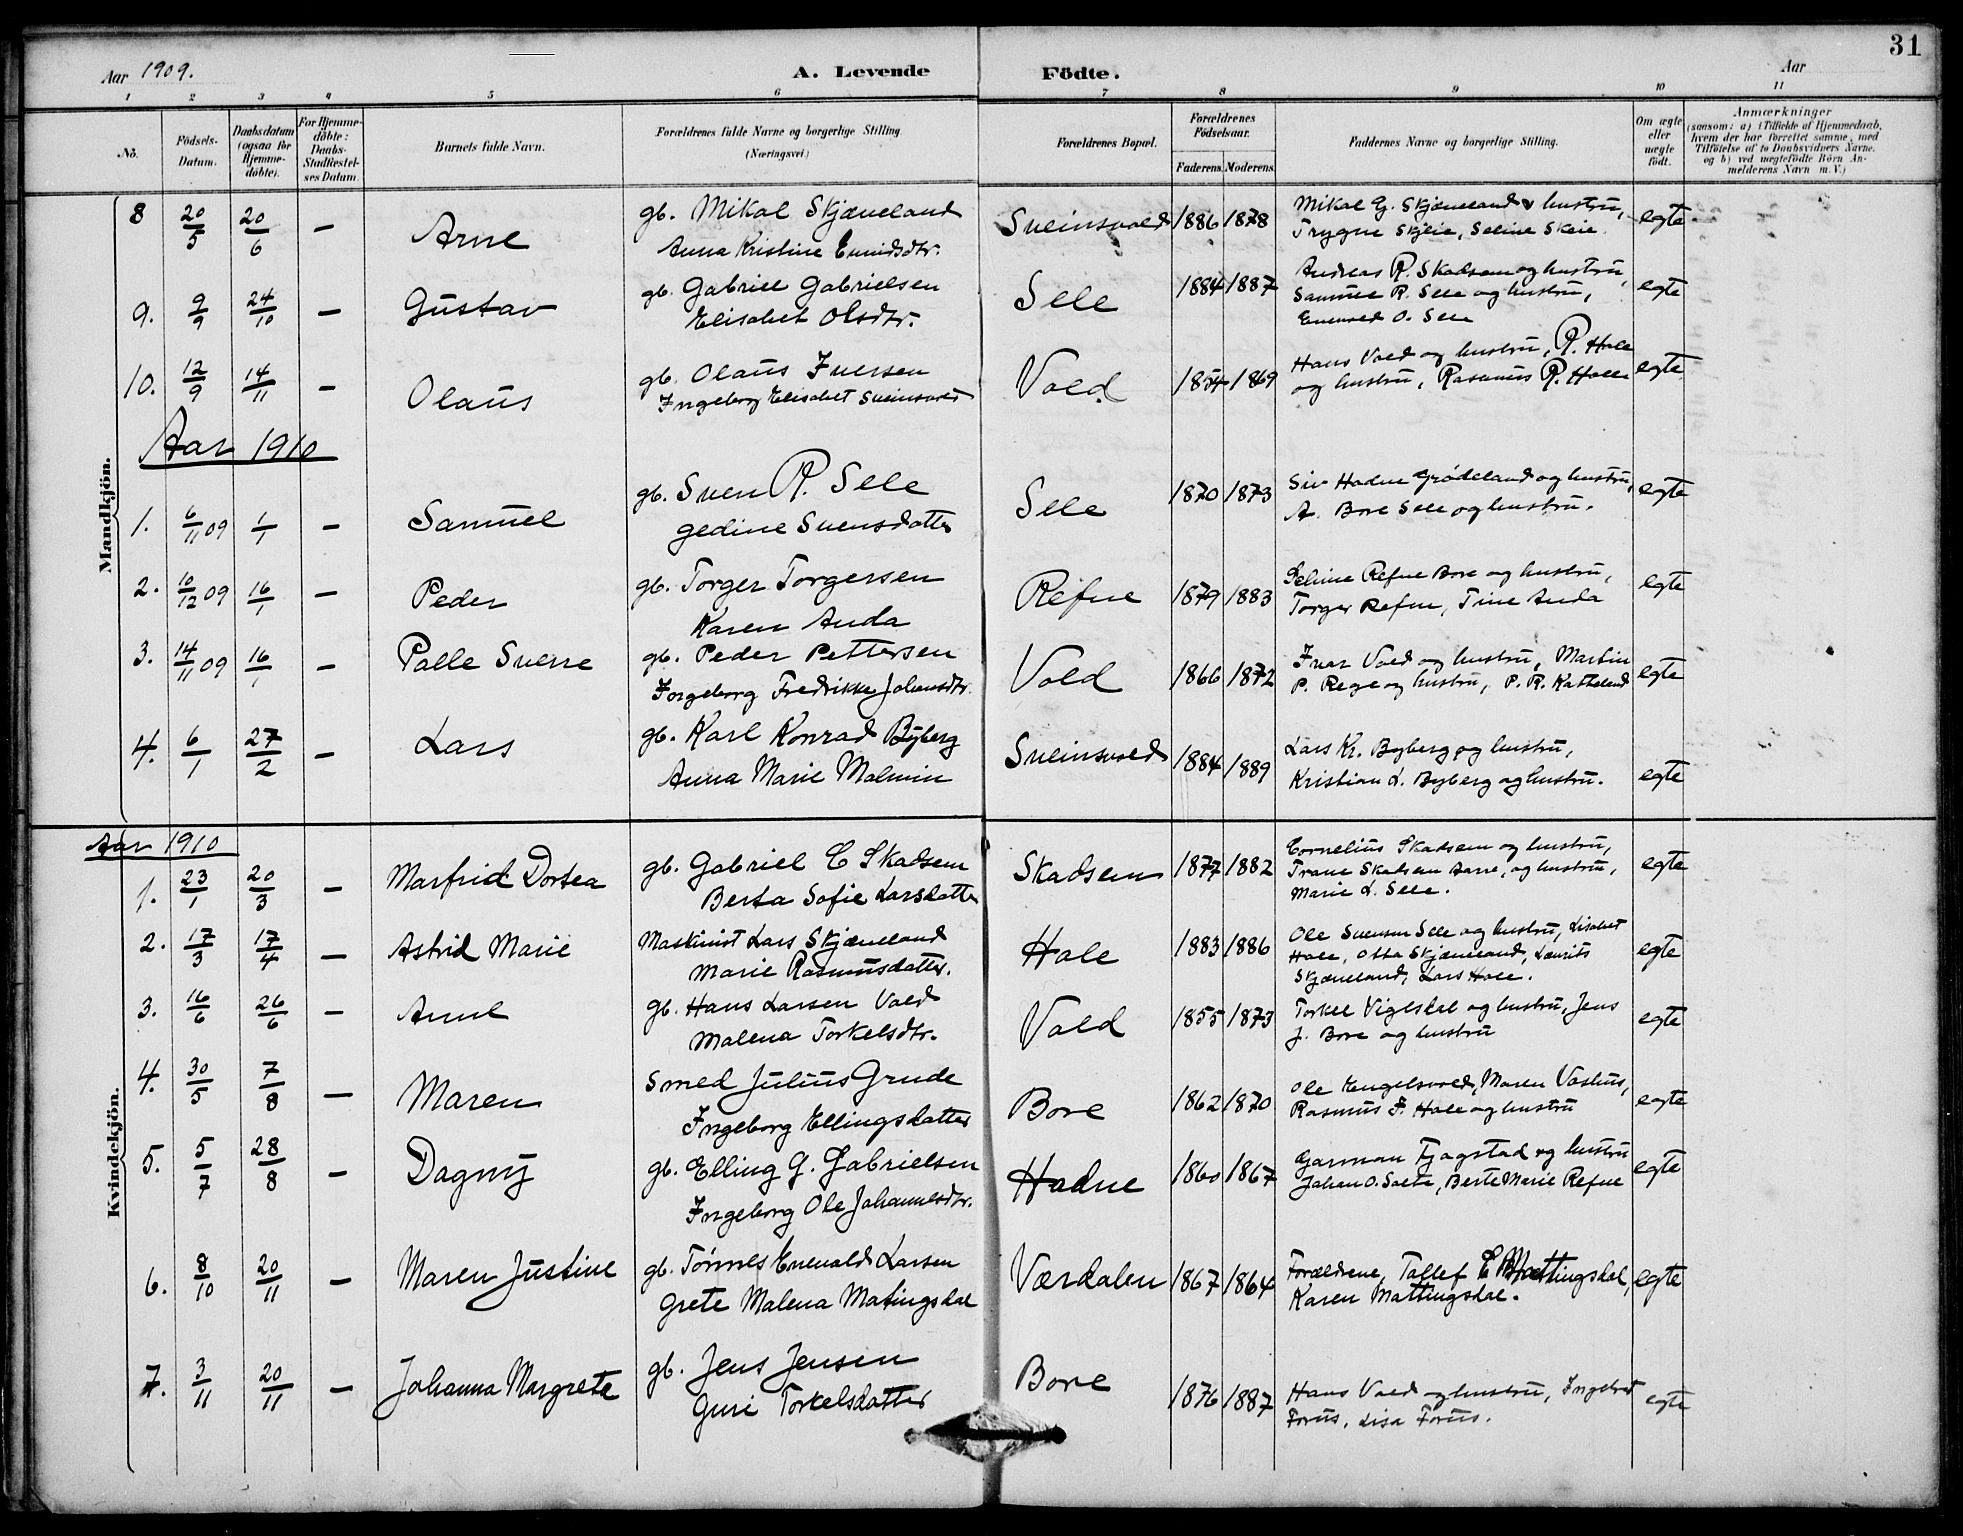 31
Aar 1909.
A. Levende Födte.
Aar
1 2 3 4 5 6 7 8 9 10 11
No.
Födsels-Datum.
Daabsdatum (ogsaa for Hjemme-döbte).
For Hjemme-döbte: Daabs-Stadfæstel-ses Datum.
Barnets fulde Navn.
Forældrenes fulde Navne og borgerlige Stilling. (Næringsvei.)
Forældrenes Bopæl.
Forældrenes Födselsaar.
Faderens. Moderens.
Faddernes Navne og borgerlige Stilling.
Om ægte eller uægte födt.
Anmærkninger
(saasom: a) i Tilfælde af Hjemmedaab,
hvem der har forrettet samme, med
Tilföielse af to Daabsvidners Navne.
og b) ved uægtefödte Börn An-
melderens Navn m. V.)
Mandkjön.
8 20/5 20/6 — Arne gb. Mikal Skjæveland Sveinsvold 1886 1878 Mikal G. Skjæveland & hustru, egte
Anna Kristine Trygve Skjeie, Seline Skeie.
9. 9/9 24/10 — Gustav gb. Gabriel Gabrielsen Sele 1884 1887 Andreas R. Skadsem og hustru, egte
Elisabet Olsdtr. Samuel R. Sele og hustru,
Enevald O. Sele
10. 12/9 14/11 — Olaus gb. Olaus Iversen Vold 1854 1869 Hans Vold og hustru, R. Hole egte
Ingeborg Elisabet Sveinsvold og hustru, Rasmus R. Hole
Aar 1910
1. 6/11 09 1/1 — Samuel gb. Sven R. Sele Sele 1870 1873 Siv Hadne Grødeland og hustru, egte
Gedine Svensdatter A. Bore Sele og hustru.
2. 10/12 09 16/1 — Peder gb. Torger Torgersen Refne 1879 1883 Refne Bore og hustru, egte
Karen Anda Torger Refne, Tine Anda
3. 14/11 09 16/1 — Palle Sverre gb. Peder Pettersen Vold 1866 1872 Ivar Vold og hustru, Martin egte
Ingeborg Fredrikke Johansdtr. P. Rege og hustru, P. R.
4. 6/1 27/2 — Lars gb. Karl Konrad Byberg Sveinsvold 1884 1889 Lars Kr. Byberg og hustru, egte
Anna Marie Malmin Kristian L. Byberg og hustru.
Kvindekjön.
Aar 1910
1. 23/1 20/3 — Marfrid Dortea gb. Gabriel C Skadsem Skadsem 1877 1882 Cornelius Skadsem og hustru, egte
Berta Sofie Larsdatter Trane Skadsem Aarre, og hustru,
Marie L. Sele.
2. 17/3 17/4 — Astrid Marie Maskinist Lars Skjæveland Hole 1883 1886 Ole Svensen Sele og hustru, Lisabet egte
Marie Rasmusdatter. Hole, Otta Skjæveland, Laurits
Skjæveland, Lars Hole.
3. 16/6 26/6 — Anne gb. Hans Larsen Vold Vold 1855 1873 Torkel Viglsdal og hustru, Jens egte
Malena Torkelsdtr. J. Bore og hustru
4. 30/5 7/8 — Maren Smed Julius Grude Bore 1862 1870 Ole Engelsvold, Maren Vashus, egte
Ingeborg Ellingsdatter Rasmus F. Hole og hustru
5. 5/7 28/8 — Dagny gb. Elling G. Gabrielsen Hadne 1860 1867 Garman Fjogstad og hustru egte
Ingeborg Ole Johannesdtr. Johan O. Salte, Berte Marie Refne
6. 8/10 20/11 — Maren Justine gb. Tönnes Enevald Larsen Værdalen 1867 1864 Forældrene, Tallef E Mattingsdal, egte
Grete Malena Matingsdal Karen Mattingsdal.
7. 3/11 20/11 — Johanna Margrete gb. Jens Jensen Bore 1876 1887 Hans Vold og hustru, Ingebret egte
Guri Torkelsdatter Forus, Lisa Forus.